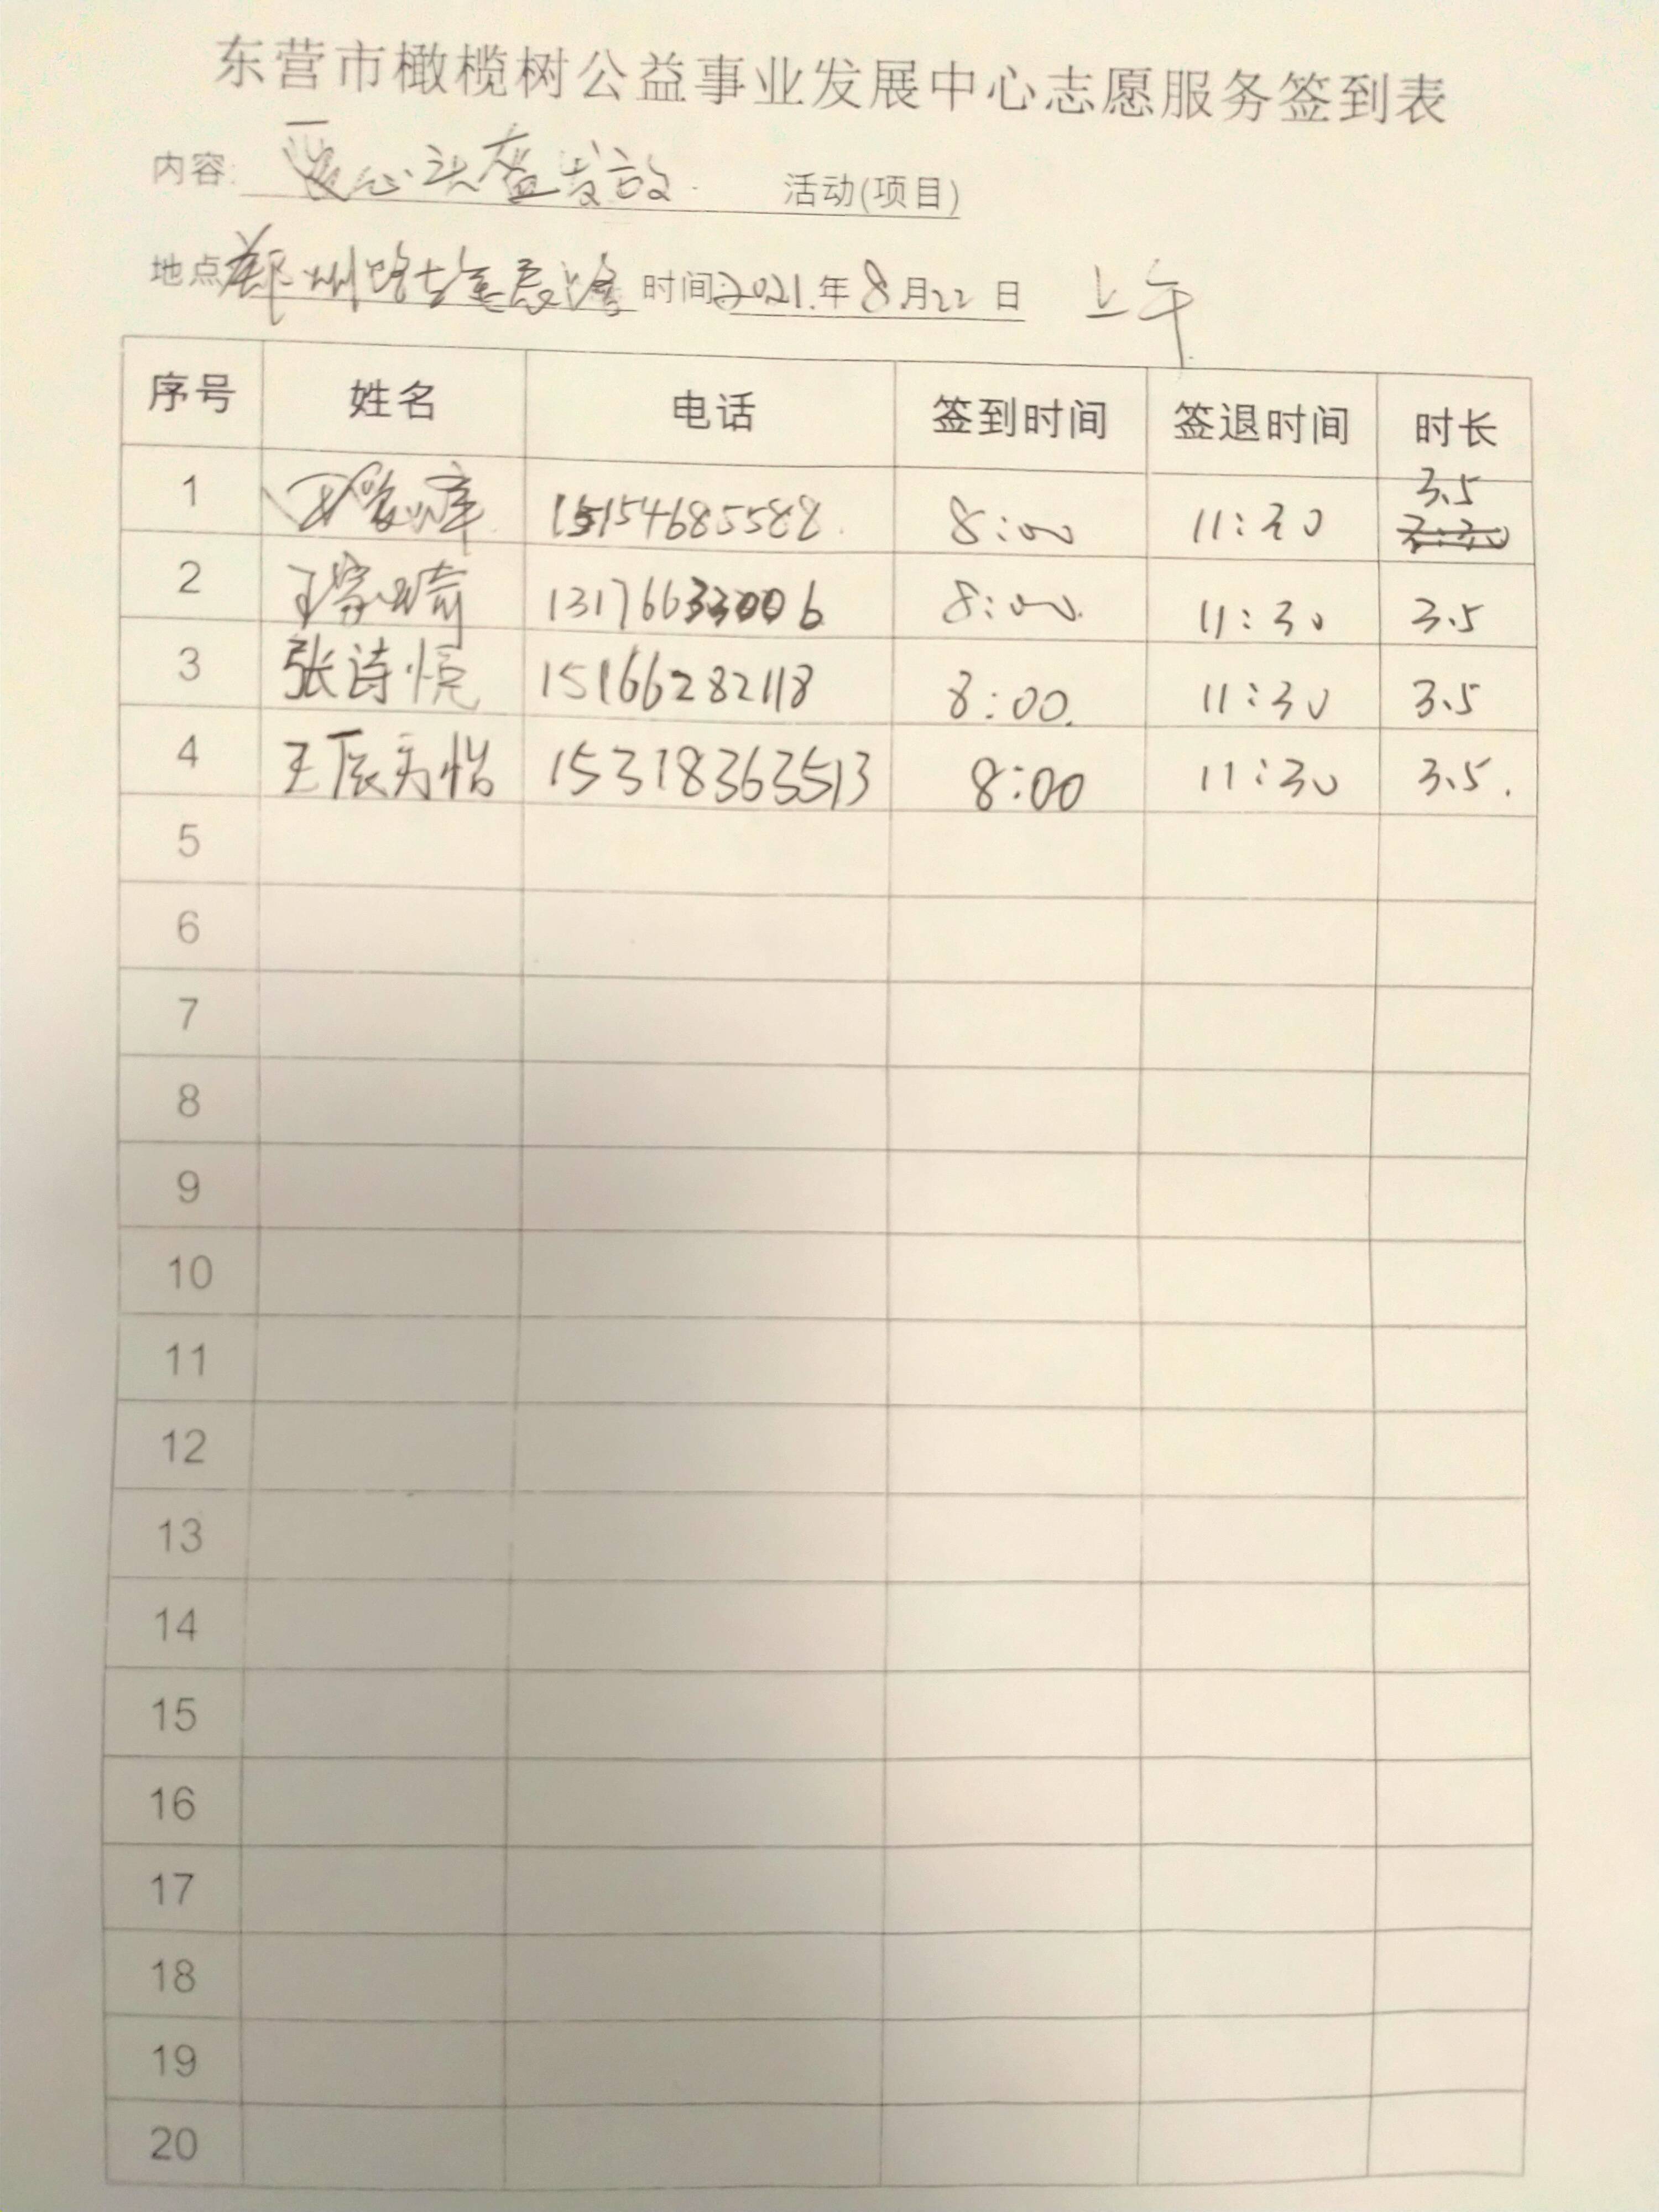 东营市橄榄树公益事业发展中心志愿服务签到表
内容: 爱心头盔发放 活动(项目)
地点 郑州路 时间: 2021.年8月22日 上午
序号 姓名 电话 签到时间 签退时间 时长
1 15154685588 8:00 11:30 3.5
2 王家琦 13176633006 8:00 11:30 3.5
3 张诗悦 15166282118 8:00 11:30 3.5
4 王辰怡 15318363513 8:00 11:30 3.5
5
6
7
8
9
10
11
12
13
14
15
16
17
18
19
20